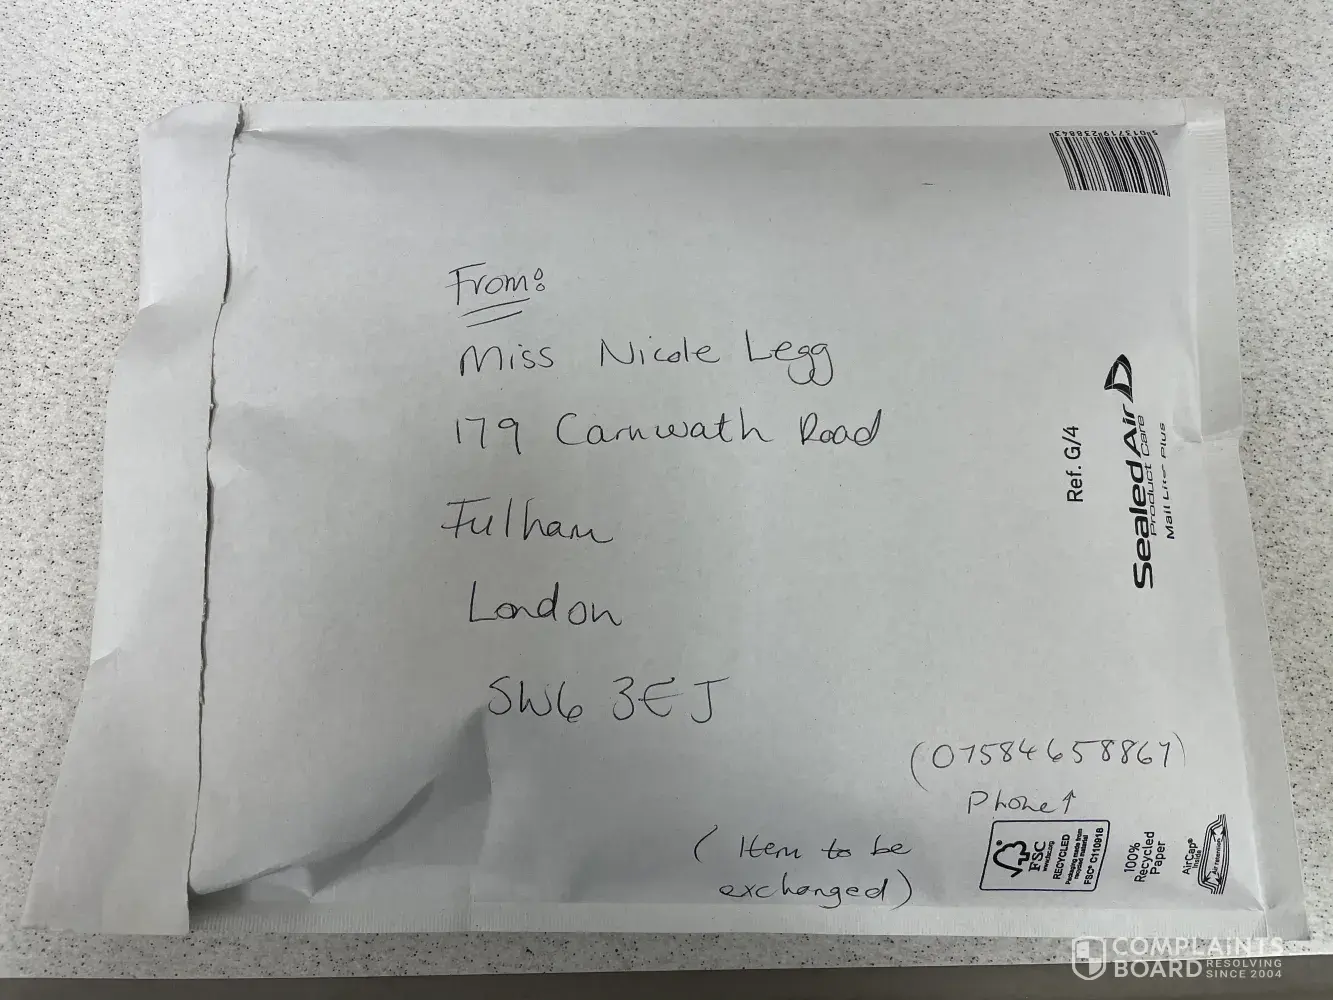 5013719238843
From:
Miss Nicole Legg
179 Carnwath Road
Fulham
London
SW6 3EJ
(07584658867)
Phone↑
(Item to be
exchanged)
Ref. G/4
Sealed Air
Product Care
Mail Lite Plus
FSC
www.fsc.org
RECYCLED
Packaging made from
recycled material
FSC® C110918
100%
Recycled
Paper
AirCap®
Inside
COMPLAINTS
BOARD RESOLVING
SINCE 2004